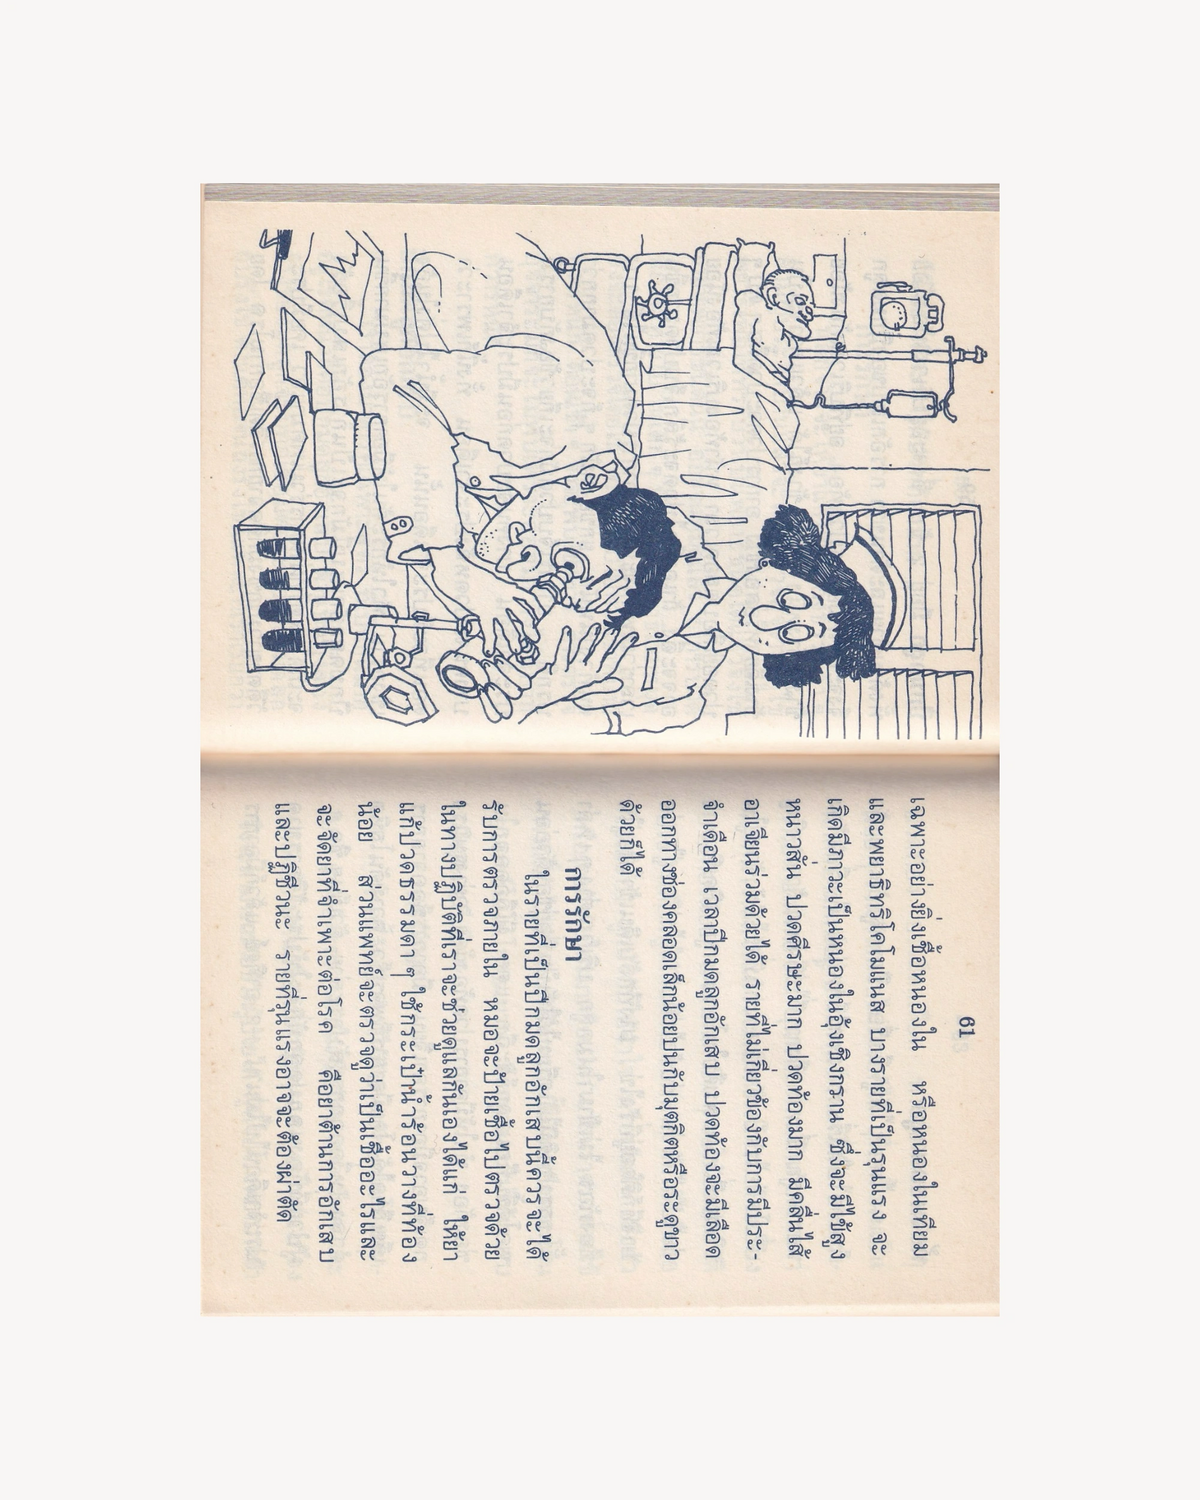 61
เฉพาะอย่างยิ่งเชื้อหนองใน หรือหนองในเทียม
และพยาธิทริโคโมแนส บางรายที่เป็นรุนแรง จะ
เกิดมีภาวะเป็นหนองในอุ้งเชิงกราน ซึ่งจะมีไข้สูง
หนาวสั่น ปวดศีรษะมาก ปวดท้องมาก มีคลื่นไส้
อาเจียนร่วมด้วยได้ รายที่ไม่เกี่ยวข้องกับการมีประ-
จำเดือน เวลาปีกมดลูกอักเสบ ปวดท้องจะมีเลือด
ออกทางช่องคลอดเล็กน้อยปนกับมุตกิตหรือระดูขาว
ด้วยก็ได้
การรักษา
ในรายที่เป็นปีกมดลูกอักเสบนี้ควรจะได้
รับการตรวจภายใน หมอจะป้ายเชื้อไปตรวจด้วย
ในทางปฏิบัติที่เราจะช่วยดูแลกันเองได้แก่ ให้ยา
แก้ปวดธรรมดา ๆ ใช้กระเป๋าน้ำร้อนวางที่ท้อง
น้อย ส่วนแพทย์จะตรวจดูว่าเป็นเชื้ออะไรและ
จะจัดยาที่จำเพาะต่อโรค คือยาต้านการอักเสบ
และปฏิชีวนะ รายที่รุนแรงอาจจะต้องผ่าตัด